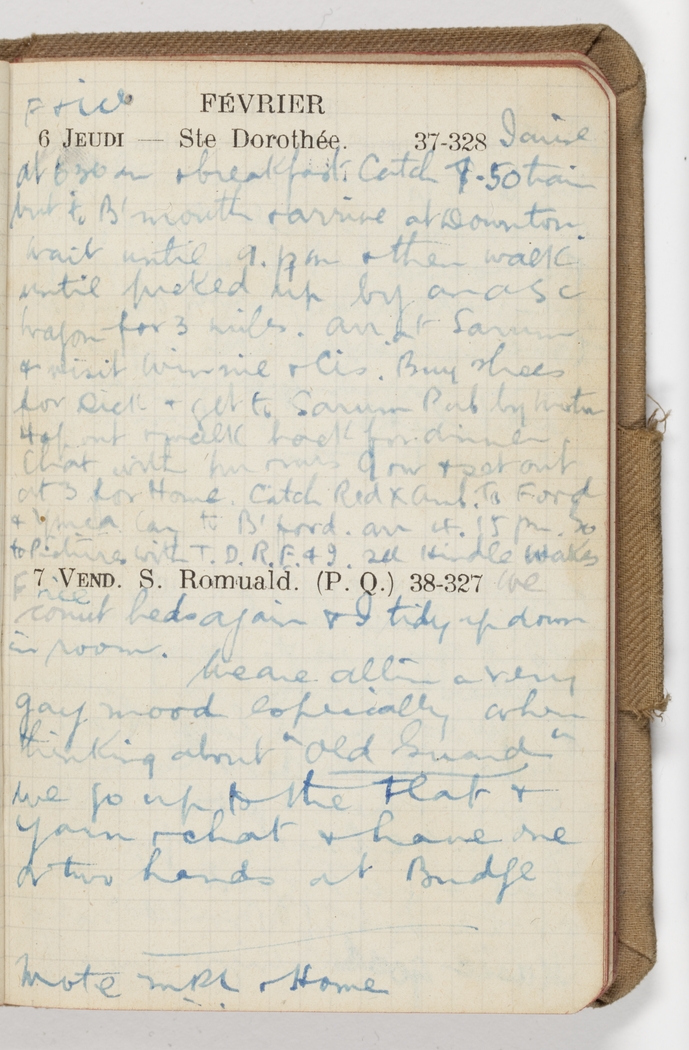 FÉVRIER
6 JEUDI — Ste Dorothée. 37-328
at 6 30 am + breakfast. Catch 7-50 train
but to B'mouth + arrive at Downton.
Wait until 9. pm + then walk
until picked up by an ASC
Wagon for 3 miles. arr. at Sarum
+ visit Winnie + Cis. Buy shoes
for Dick + get to Sarum Pub by motor
out + walk back for dinner
Chat with + set out
at 3 for Home. Catch Red X Amb. To Ford
+ Ymca Car to B'ford. arr 4. 15 pm. Go
to Pictures with T. D. R. F. + J. makes
7 VEND. S. Romuald. (P. Q.) 38-327 We
Free
count beds again + I tidy up down
in room.
We are all in a very
gay mood especially when
thinking about "Old Guard"
we go up to the Flat +
Yarn + chat + have one
or two hands at Bridge
Wrote + Home